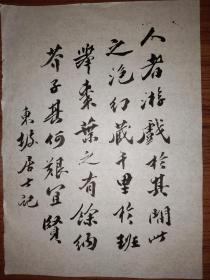 人者游戲於其間此
之泡幻藏千里於班
舉棗葉之有餘納
芥子其何艱宜賢
東坡居士記